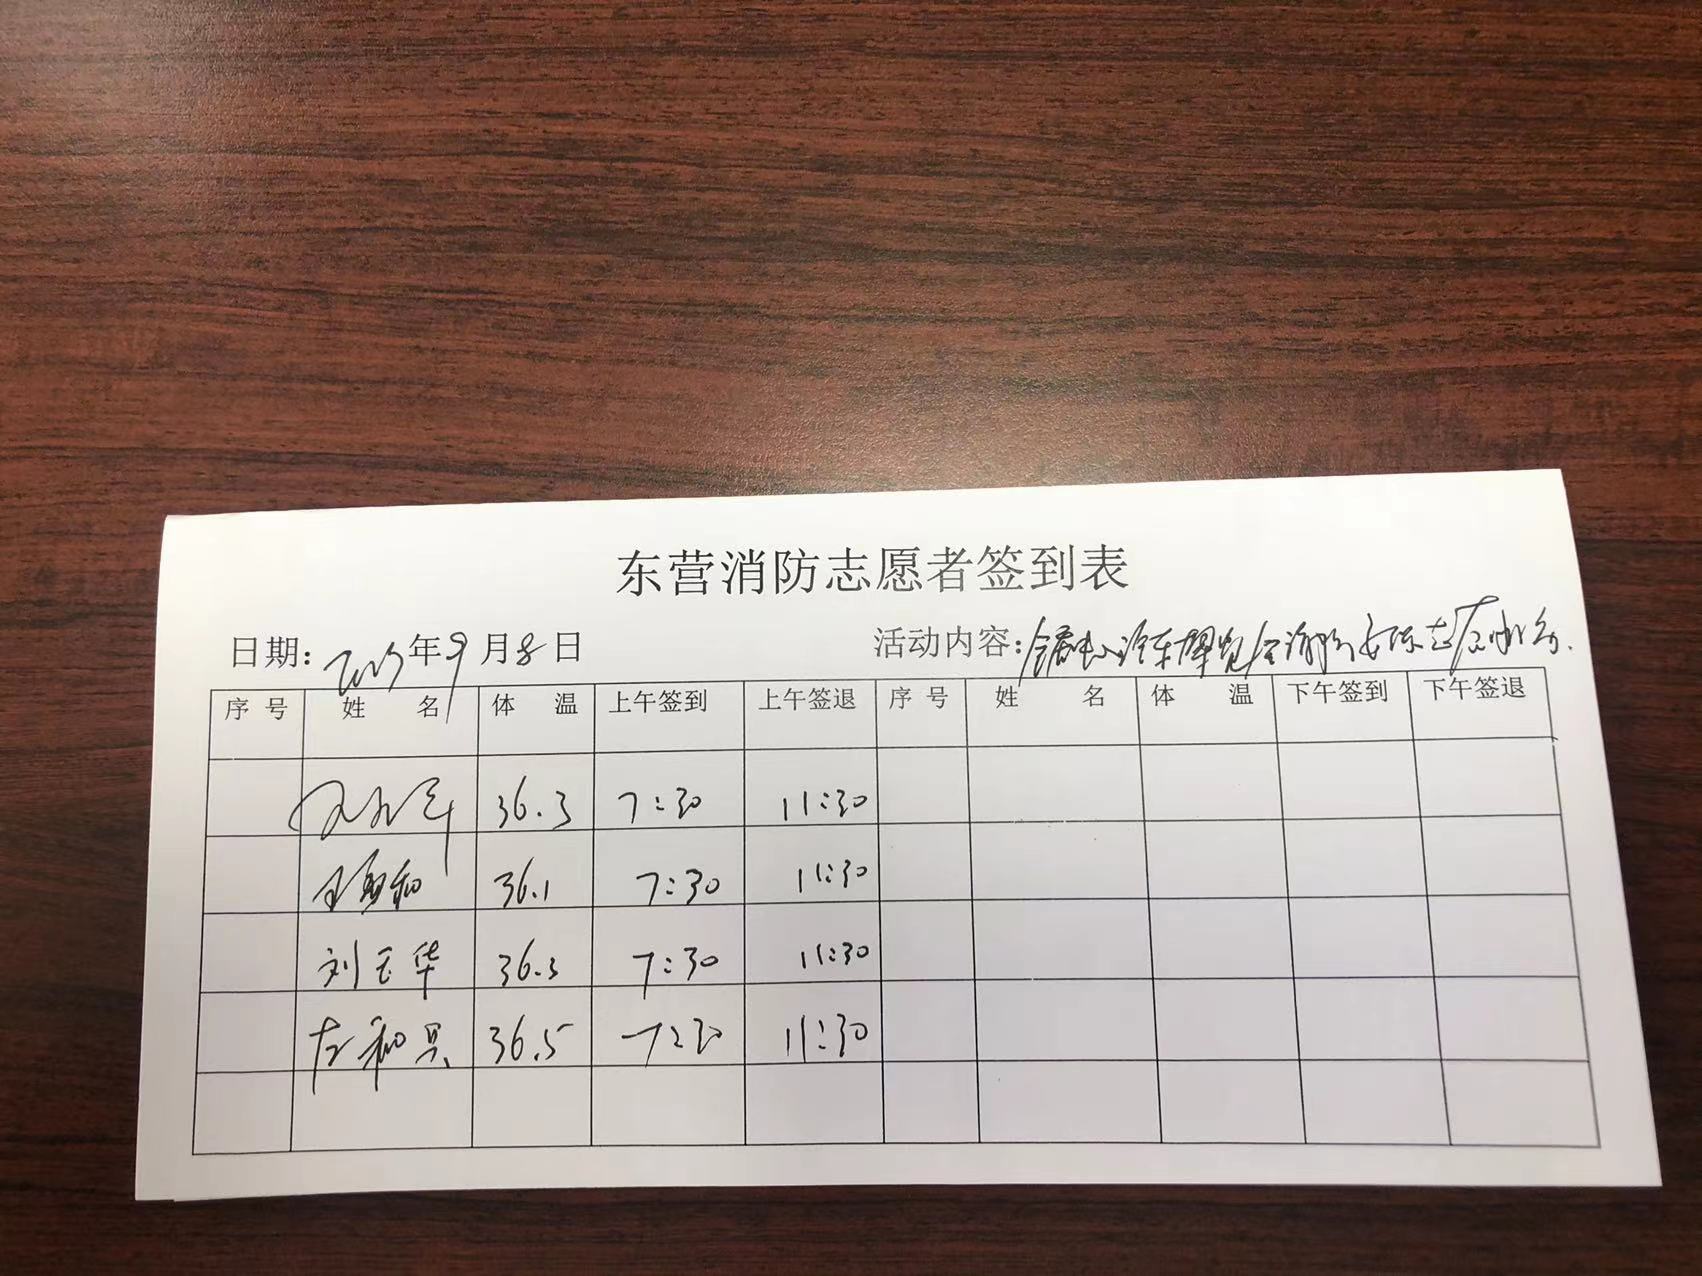 东营消防志愿者签到表
日期: 年9月8日 活动内容: 汽车博览会消防安保志愿服务
序号 姓名 体温 上午签到 上午签退 序号 姓名 体温 下午签到 下午签退
36.3 7:30 11:30
36.1 7:30 11:30
刘玉华 36.3 7:30 11:30
左和 36.5 7:30 11:30